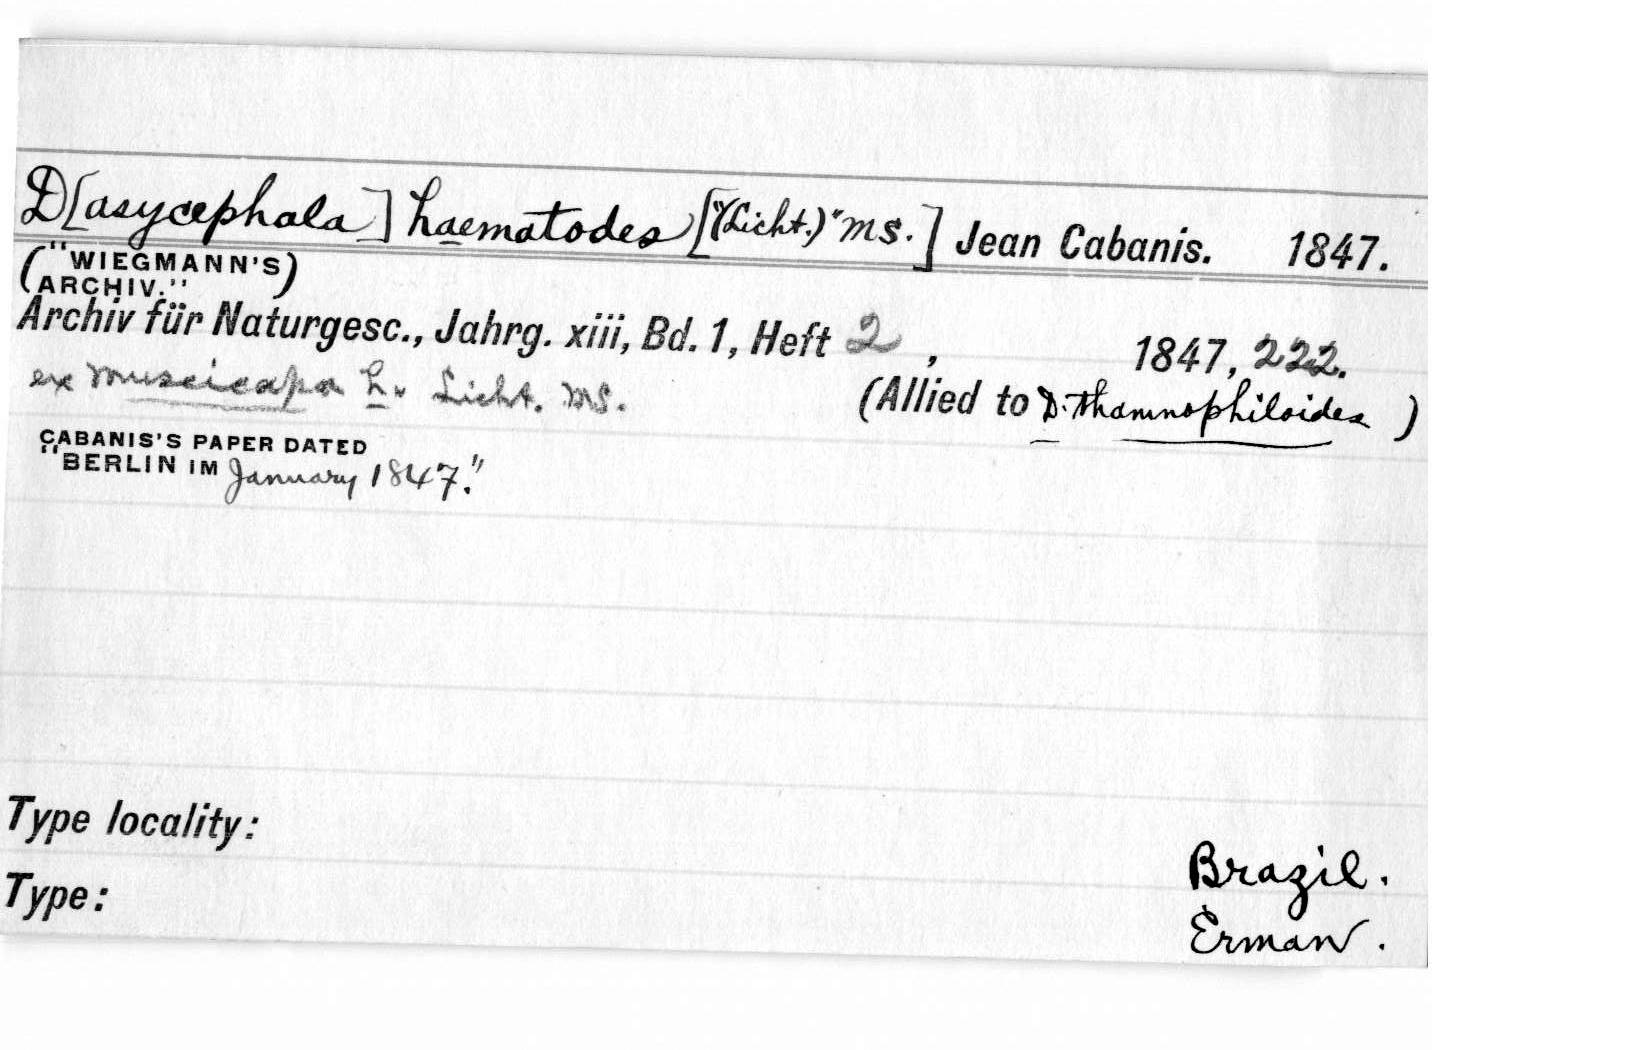 D[asycephala] haematodes ["(Licht.)" MS.] Jean Cabanis. 1847.
("WIEGMANN'S
ARCHIV.")
Archiv für Naturgesc., Jahrg. xiii, Bd. 1, Heft 2, 1847, 222.
ex Muscicapa h. Licht. MS. (Allied to D. thamnophiloides )
CABANIS'S PAPER DATED
"BERLIN IM January 1847."
Type locality: Brazil.
Type: Erman.